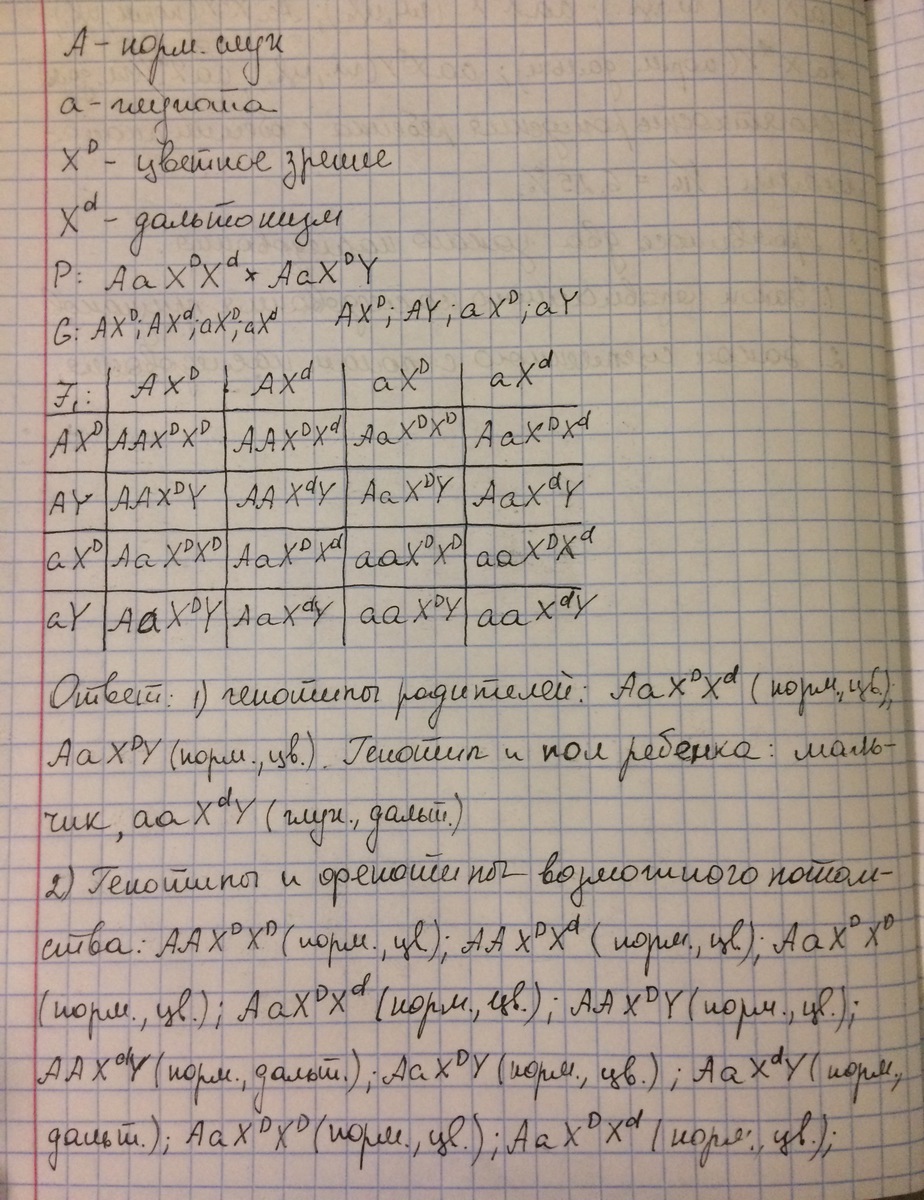 А – норм. слух
а – глухота
X^D – цветное зрение
X^d – дальтонизм
P: Aa X^D X^d × Aa X^D Y
G: AX^D; AX^d; aX^D; aX^d   AX^D; AY; aX^D; aY
F₁: | AX^D | AX^d | aX^D | aX^d
AX^D | AAX^DX^D | AAX^DX^d | AaX^DX^D | AaX^DX^d
AY | AAX^DY | AAX^dY | AaX^DY | AaX^dY
aX^D | AaX^DX^D | AaX^DX^d | aaX^DX^D | aaX^DX^d
aY | AaX^DY | AaX^dY | aaX^DY | aaX^dY
Ответ: 1) генотипы родителей: AaX^DX^d (норм., цв.);
AaX^DY (норм., цв.). Генотип и пол ребенка: маль-
чик, aaX^dY (глух., дальт.)
2) Генотипы и фенотипы возможного потом-
ства: AAX^DX^D (норм., цв.); AAX^DX^d (норм., цв.); AaX^DX^D
(норм., цв.); AaX^DX^d (норм., цв.); AAX^DY (норм., цв.);
AAX^dY (норм., дальт.); AaX^DY (норм., цв.); AaX^dY (норм.,
дальт.); AaX^DX^D (норм., цв.); AaX^DX^d (норм., цв.);